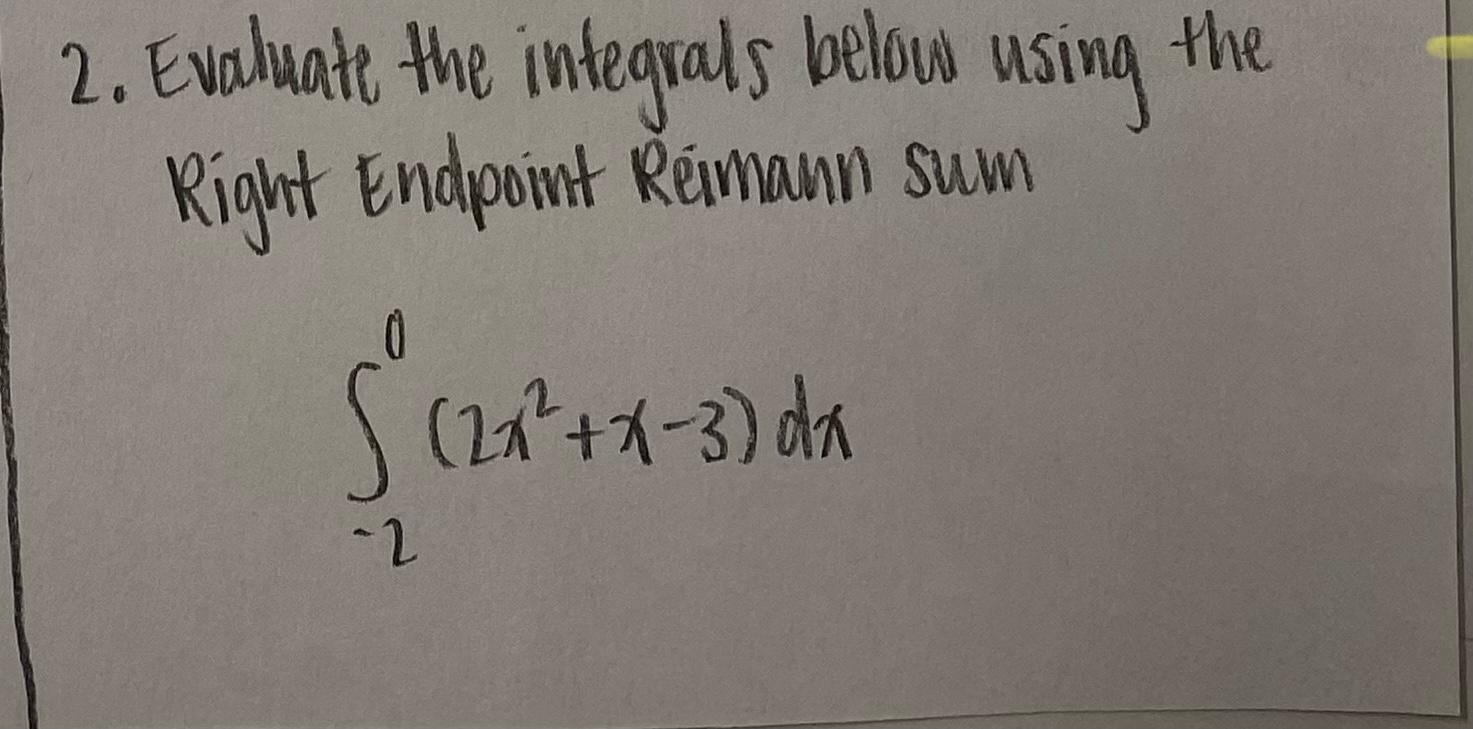 2. Evaluate the integrals below using the
Right Endpoint Reimann sum
∫₋₂⁰ (2x²+x-3) dx